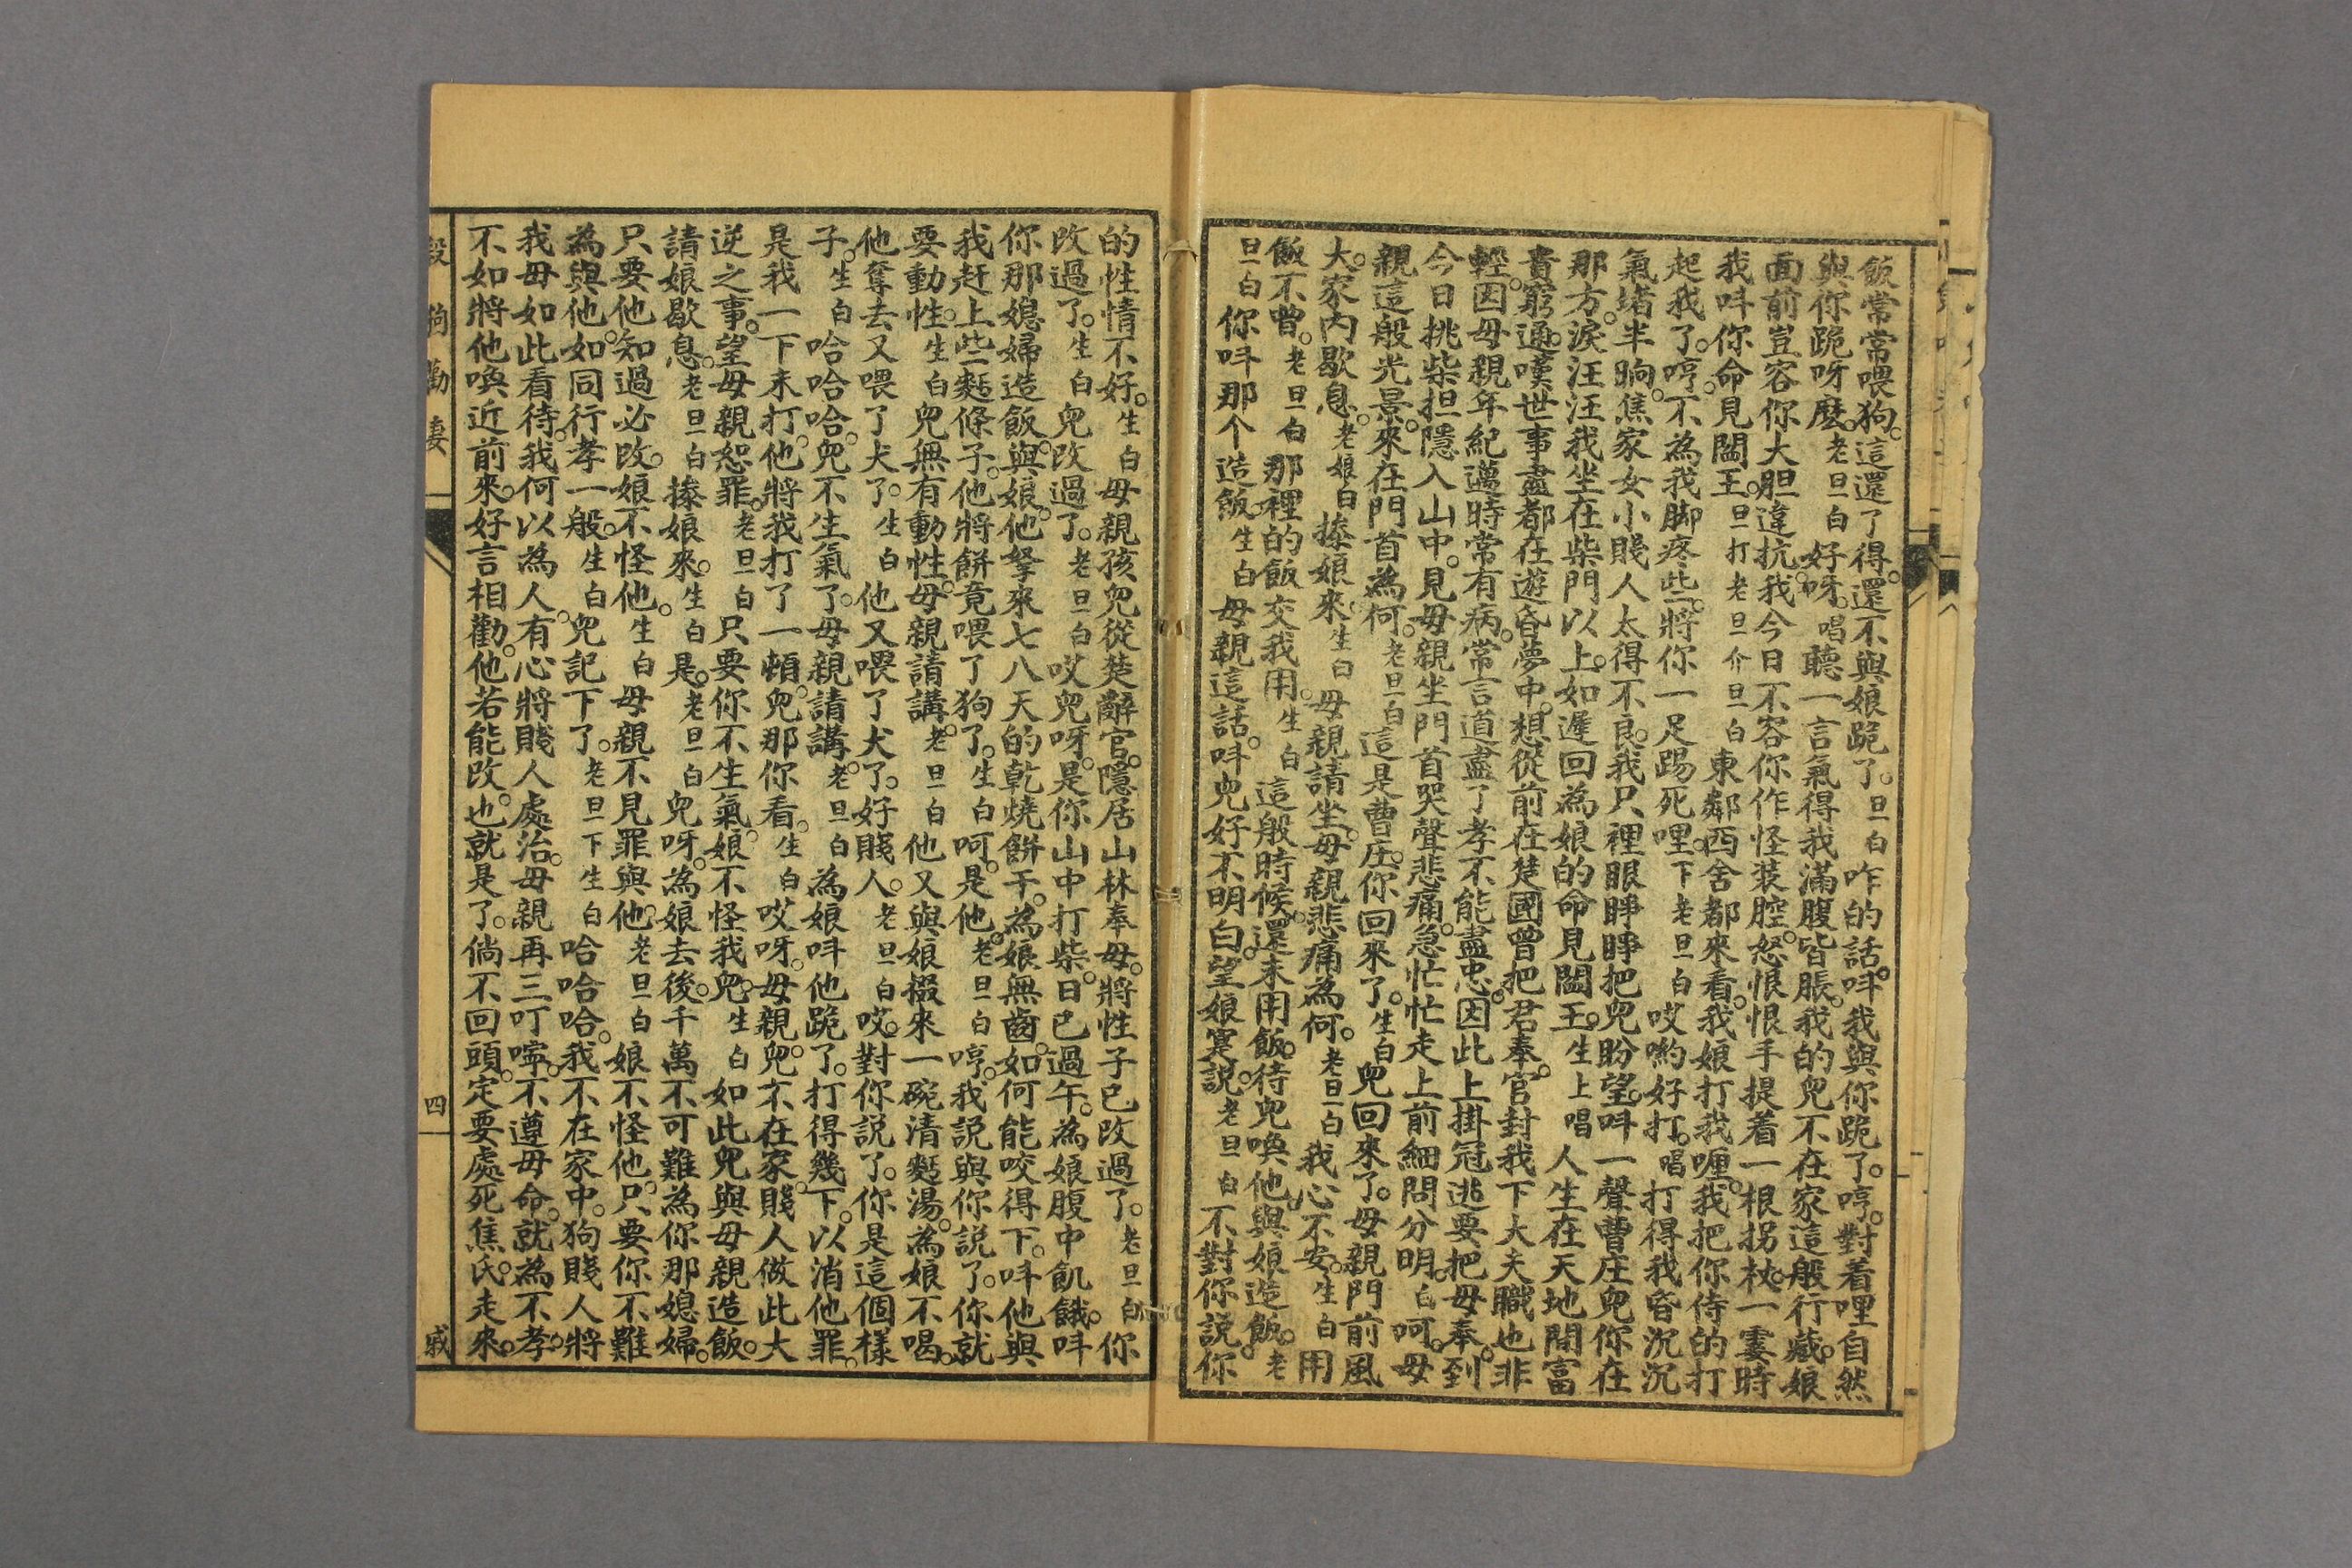 飯常常喂狗。這還了得。還不與娘跪了。旦白咋的話。呌我與你跪了。哼。對着哩自然
與你跪呀麽。老旦白好呀。唱聽一言氣得我滿腹皆脹。我的兒不在家這般行藏。娘
面前豈容你大胆違抗。我今日不容你作怪裝腔。怒恨恨手提着一根拐杖。一霎時
我呌你命見閻王。旦打老旦介旦白東鄰西舍都來看。我娘打我喱。我把你侍的打
起我了。哼。不為我脚疼些。將你一足踢死哩。下老旦白哎喲好打。唱打得我昏沉沉
氣堵半晌。焦家女小賤人太得不良。我只裡眼睜睜把兒盼望。呌一聲曹庄兒你在
那方。淚汪汪我坐在柴門以上。如遲回為娘的命見閻王。生上唱人生在天地間富
貴窮通。嘆世事盡都在遊昏夢中。想從前在楚國曾把君奉。官封我下大夫職也非
輕。因母親年紀邁時常有病。常言道盡了孝不能盡忠。因此上掛冠逃要把母奉。到
今日挑柴担隱入山中。見母親坐門首哭聲悲痛。急忙忙走上前細問分明。白呵。母
親這般光景。來在門首為何。老旦白這是曹庄。你回來了。生白兒回來了。母親門前風
大。家內歇息。老娘白攙娘來。生白母親請坐。母親悲痛為何。老旦白我心不安。生白用
飯不曾。老旦白那裡的飯交我用。生白這般時候。還未用飯。待兒喚他與娘造飯。老
旦白你呌那个造飯。生白母親這話。呌兒好不明白。望娘寔説。老旦白不對你説。你
的性情不好。生白母親孩兒從楚辭官。隱居山林奉母。將性子已改過了。老旦白你
改過了。生白兒改過了。老旦白哎兒呀。是你山中打柴。日已過午。為娘腹中飢餓。呌
你那媳婦造飯。與娘。他拏來七八天的乾燒餅干。為娘無齒。如何能咬得下。呌他與
我赶上些麪條子。他將餅竟喂了狗了。生白呵。是他。老旦白哼。我説與你説了。你就
要動性。生白兒無有動性。母親請講。老旦白他又與娘掇來一碗清麪湯。為娘不喝。
他奪去又喂了犬了。生白他又喂了犬了。好賤人。老旦白哎。對你説了。你是這個樣
子。生白哈哈哈。兒不生氣了。母親請講。老旦白為娘呌他跪了。打得幾下。以消他罪。
是我一下未打。他將我打了一頓。兒那你看。生白哎呀。母親。兒不在家。賤人做此大
逆之事。望母親恕罪。老旦白只要你不生氣。娘不怪我兒。生白如此兒與母親造飯。
請娘歇息。老旦白攙娘來。生白是。老旦白兒呀。為娘去後。千萬不可難為你那媳婦。
只要他知過必改。娘不怪他。生白母親不見罪與他。老旦白娘不怪他。只要你不難
為與他。如同行孝一般。生白兒記下了。老旦下生白哈哈哈。我不在家中。狗賤人將
我母如此看待。我何以為人。有心將賤人處治。母親再三叮嚀。不遵母命。就為不孝。
不如將他喚近前來。好言相勸。他若能改。也就是了。倘不回頭。定要處死焦氏。走來。
殺狗勸妻
四
戚